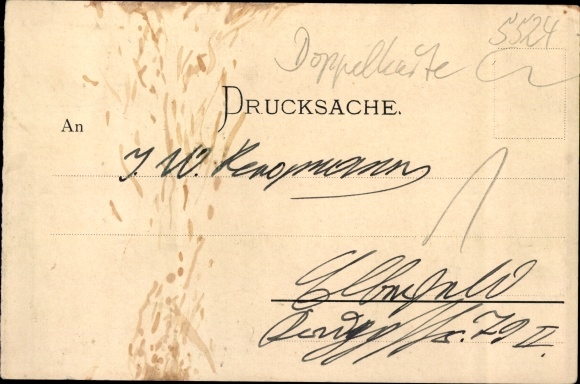 5524
Doppelkarte
DRUCKSACHE.
An
J. W.
Elberfeld
79 II.